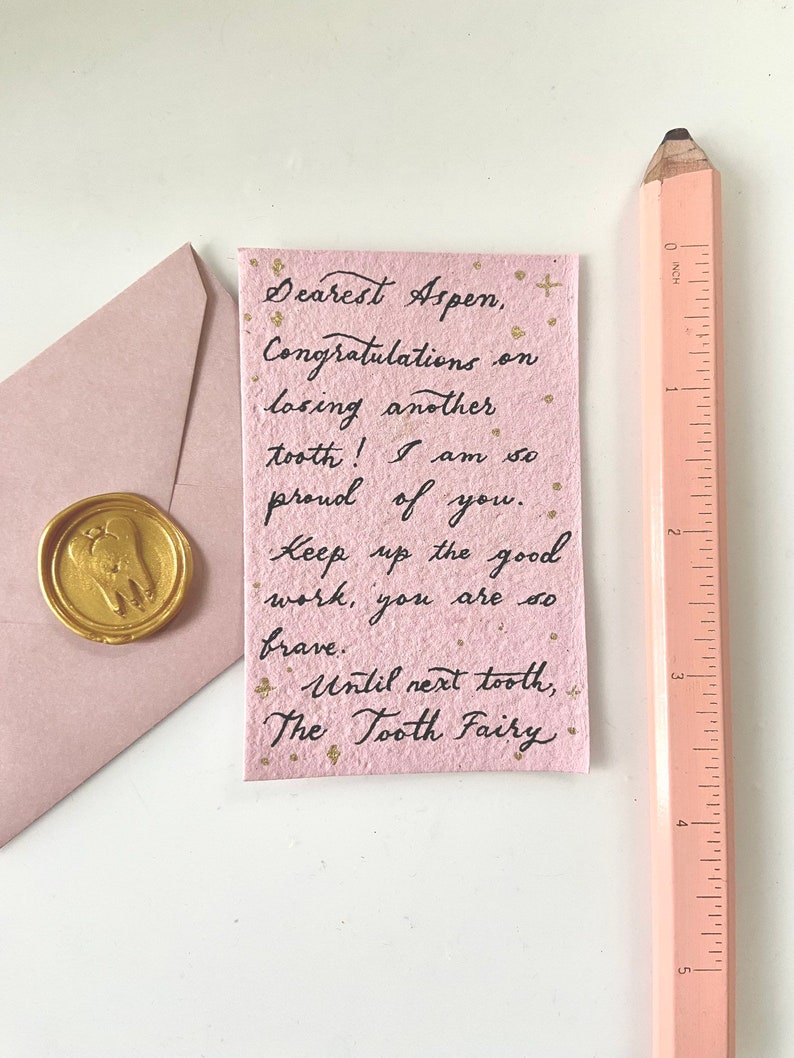 Dearest Aspen,
Congratulations on
losing another
tooth! I am so
proud of you.
Keep up the good
work, you are so
brave.
Until next tooth,
The Tooth Fairy
0
INCH
1
2
3
4
5